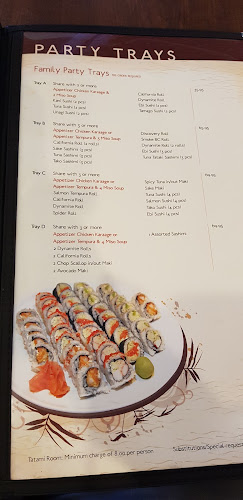 PARTY TRAYS
Family Party Trays
Tray A Share with 2 or more
Appetizer Chicken Karaage &
2 Miso Soup
Kani Sushi (2 pcs)
Tuna Sushi (2 pcs)
Unagi Sushi (2 pcs)
California Roll
Dynamite Roll
Ebi Sushi (2 pcs)
Tamago Sushi (2 pcs)
Tray B Share with 3 or more
Appetizer Chicken Karaage or
Appetizer Tempura & 3 Miso Soup
California Roll (2 rolls)
Sake Sashimi (3 pcs)
Tuna Sashimi (3 pcs)
Tako Sashimi (3 pcs)
Discovery Roll
Smoke BC Roll
Dynamite Roll (2 rolls)
Ebi Sushi (3 pcs)
Tuna Tataki Sashimi (5 pcs)
Tray C Share with 4 or more
Appetizer Chicken Karaage or
Appetizer Tempura & 4 Miso Soup
Salmon Tempura Roll
California Roll
Dynamite Roll
Spider Roll
Spicy Tuna in/out Maki
Sake Maki
Tuna Sushi (4 pcs)
Salmon Sushi (4 pcs)
Tako Sushi (4 pcs)
Ebi Sushi (4 pcs)
Tray D Share with 5 or more
Appetizer Chicken Karaage or
Appetizer Tempura & 4 Miso Soup
2 Dynamite Rolls
2 California Rolls
2 Chop Scallop in/out Maki
2 Avocado Maki
Assorted Sashimi
Tatami Room: Minimum charge of 8.00 per person
Substitutions/Special request